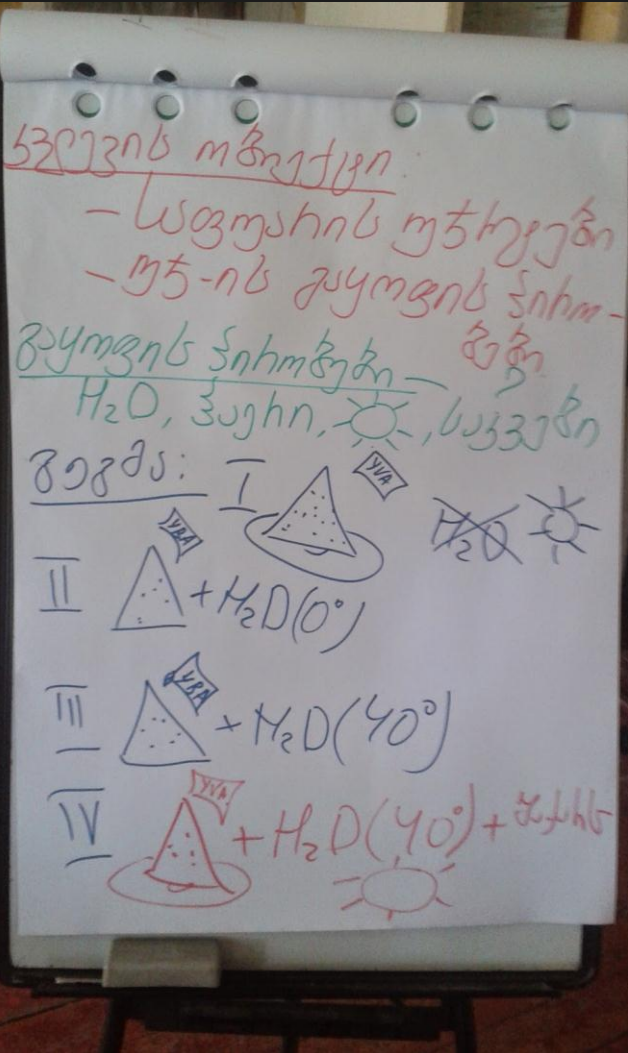 კვლევის ობიექტი:
– საფუარის უჯრედები
– უჯ-ის გაყოფის პირო-
ბები
გაყოფის პირობები – ?
H₂O, ჰაერი, , საკვები
გეგმა: I YVA H₂O
II YBA + H₂O(0°)
III YBA + H₂O(40°)
IV YVA + H₂O(40°) +